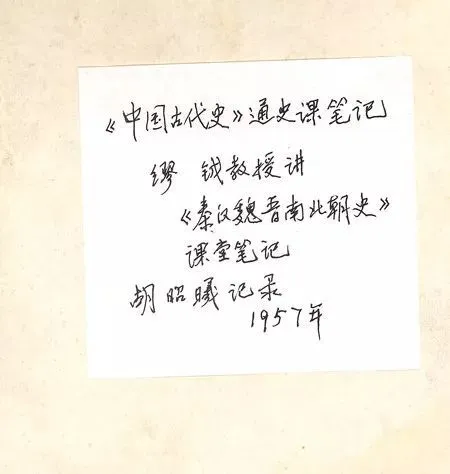 《中国古代史》通史课笔记
缪 钺教授讲
《秦汉魏晋南北朝史》
课堂笔记
胡昭曦记录
1957年